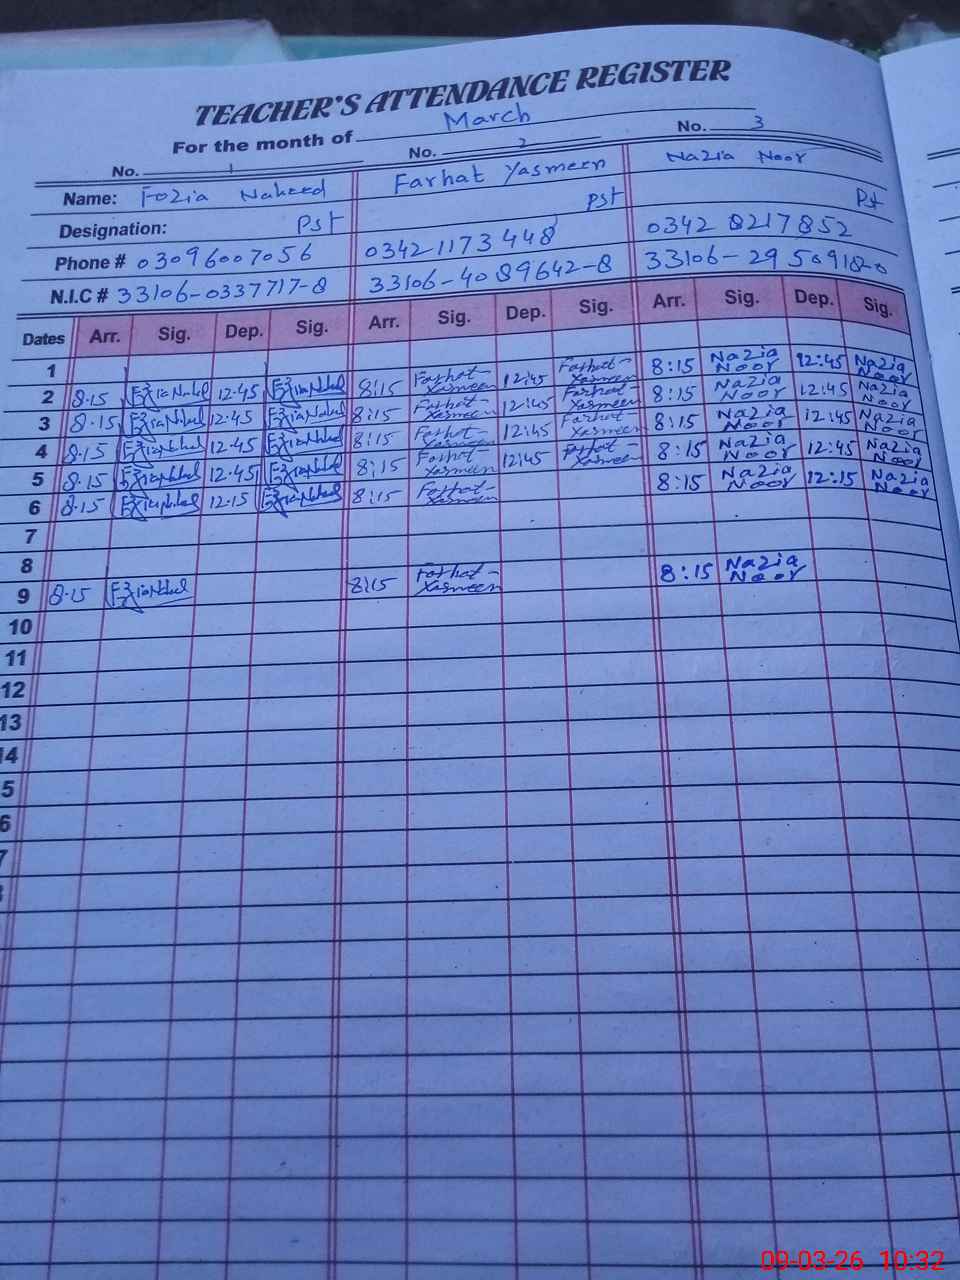 TEACHER'S ATTENDANCE REGISTER
For the month of March
No. 1 No. 2 No. 3
Name: Fozia Naheed Farhat Yasmeen Nazia Noor
Designation: Pst Pst Pst
Phone # 03096007056 0342 1173 448 0342 8217852
N.I.C # 33106-0337717-8 33106-4089642-8 33106-29 50918-0
Dates Arr. Sig. Dep. Sig. Arr. Sig. Dep. Sig. Arr. Sig. Dep. Sig.
1
2 8.15 Fozia Naheed 12.45 Fozia Naheed 8:15 Farhat Yasmeen 12:45 Farhat Yasmeen 8:15 Nazia Noor 12:45 Nazia Noor
3 8.15 Fozia Naheed 12.45 Fozia Naheed 8:15 Farhat Yasmeen 12:45 Farhat Yasmeen 8:15 Nazia Noor 12:45 Nazia Noor
4 8.15 Fozia Naheed 12.45 Fozia Naheed 8:15 Farhat Yasmeen 12:45 Farhat Yasmeen 8:15 Nazia Noor 12:45 Nazia Noor
5 8.15 Fozia Naheed 12.45 Fozia Naheed 8:15 Farhat Yasmeen 12:45 Farhat Yasmeen 8:15 Nazia Noor 12:45 Nazia Noor
6 8.15 Fozia Naheed 12.15 Fozia Naheed 8:15 Farhat Yasmeen 8:15 Nazia Noor 12:15 Nazia Noor
7
8
9 8.15 Fozia Naheed 8:15 Farhat Yasmeen 8:15 Nazia Noor
10
11
12
13
14
5
6
7
09-03-26 10:32